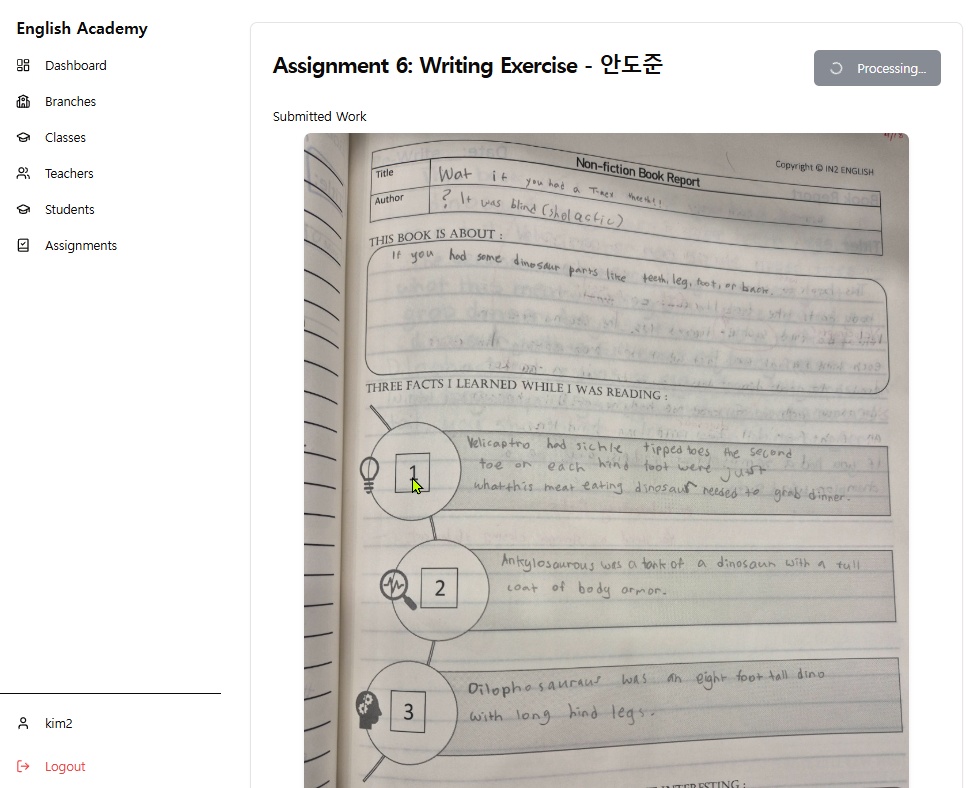 English Academy
Dashboard
Branches
Classes
Teachers
Students
Assignments
kim2
Logout
Assignment 6: Writing Exercise - 안도준
Processing...
Submitted Work
Non-fiction Book Report
Copyright © IN2 ENGLISH
Title
Wat it you had a T-rex theeth!!
Author
? It was blind (sholactic)
THIS BOOK IS ABOUT :
It you had some dinosaur parts like teeth, leg, foot, or back.
THREE FACTS I LEARNED WHILE I WAS READING :
1
Velicaptro had sichle tipped toes the second
toe on each hind foot were just
what this meat eating dinosaur needed to grab dinner.
2
Ankylosaurous was a tank of a dinosaur with a full
coat of body armor.
3
Dilophosauraus was an eight foot tall dino
with long hind legs.
INTERESTING :